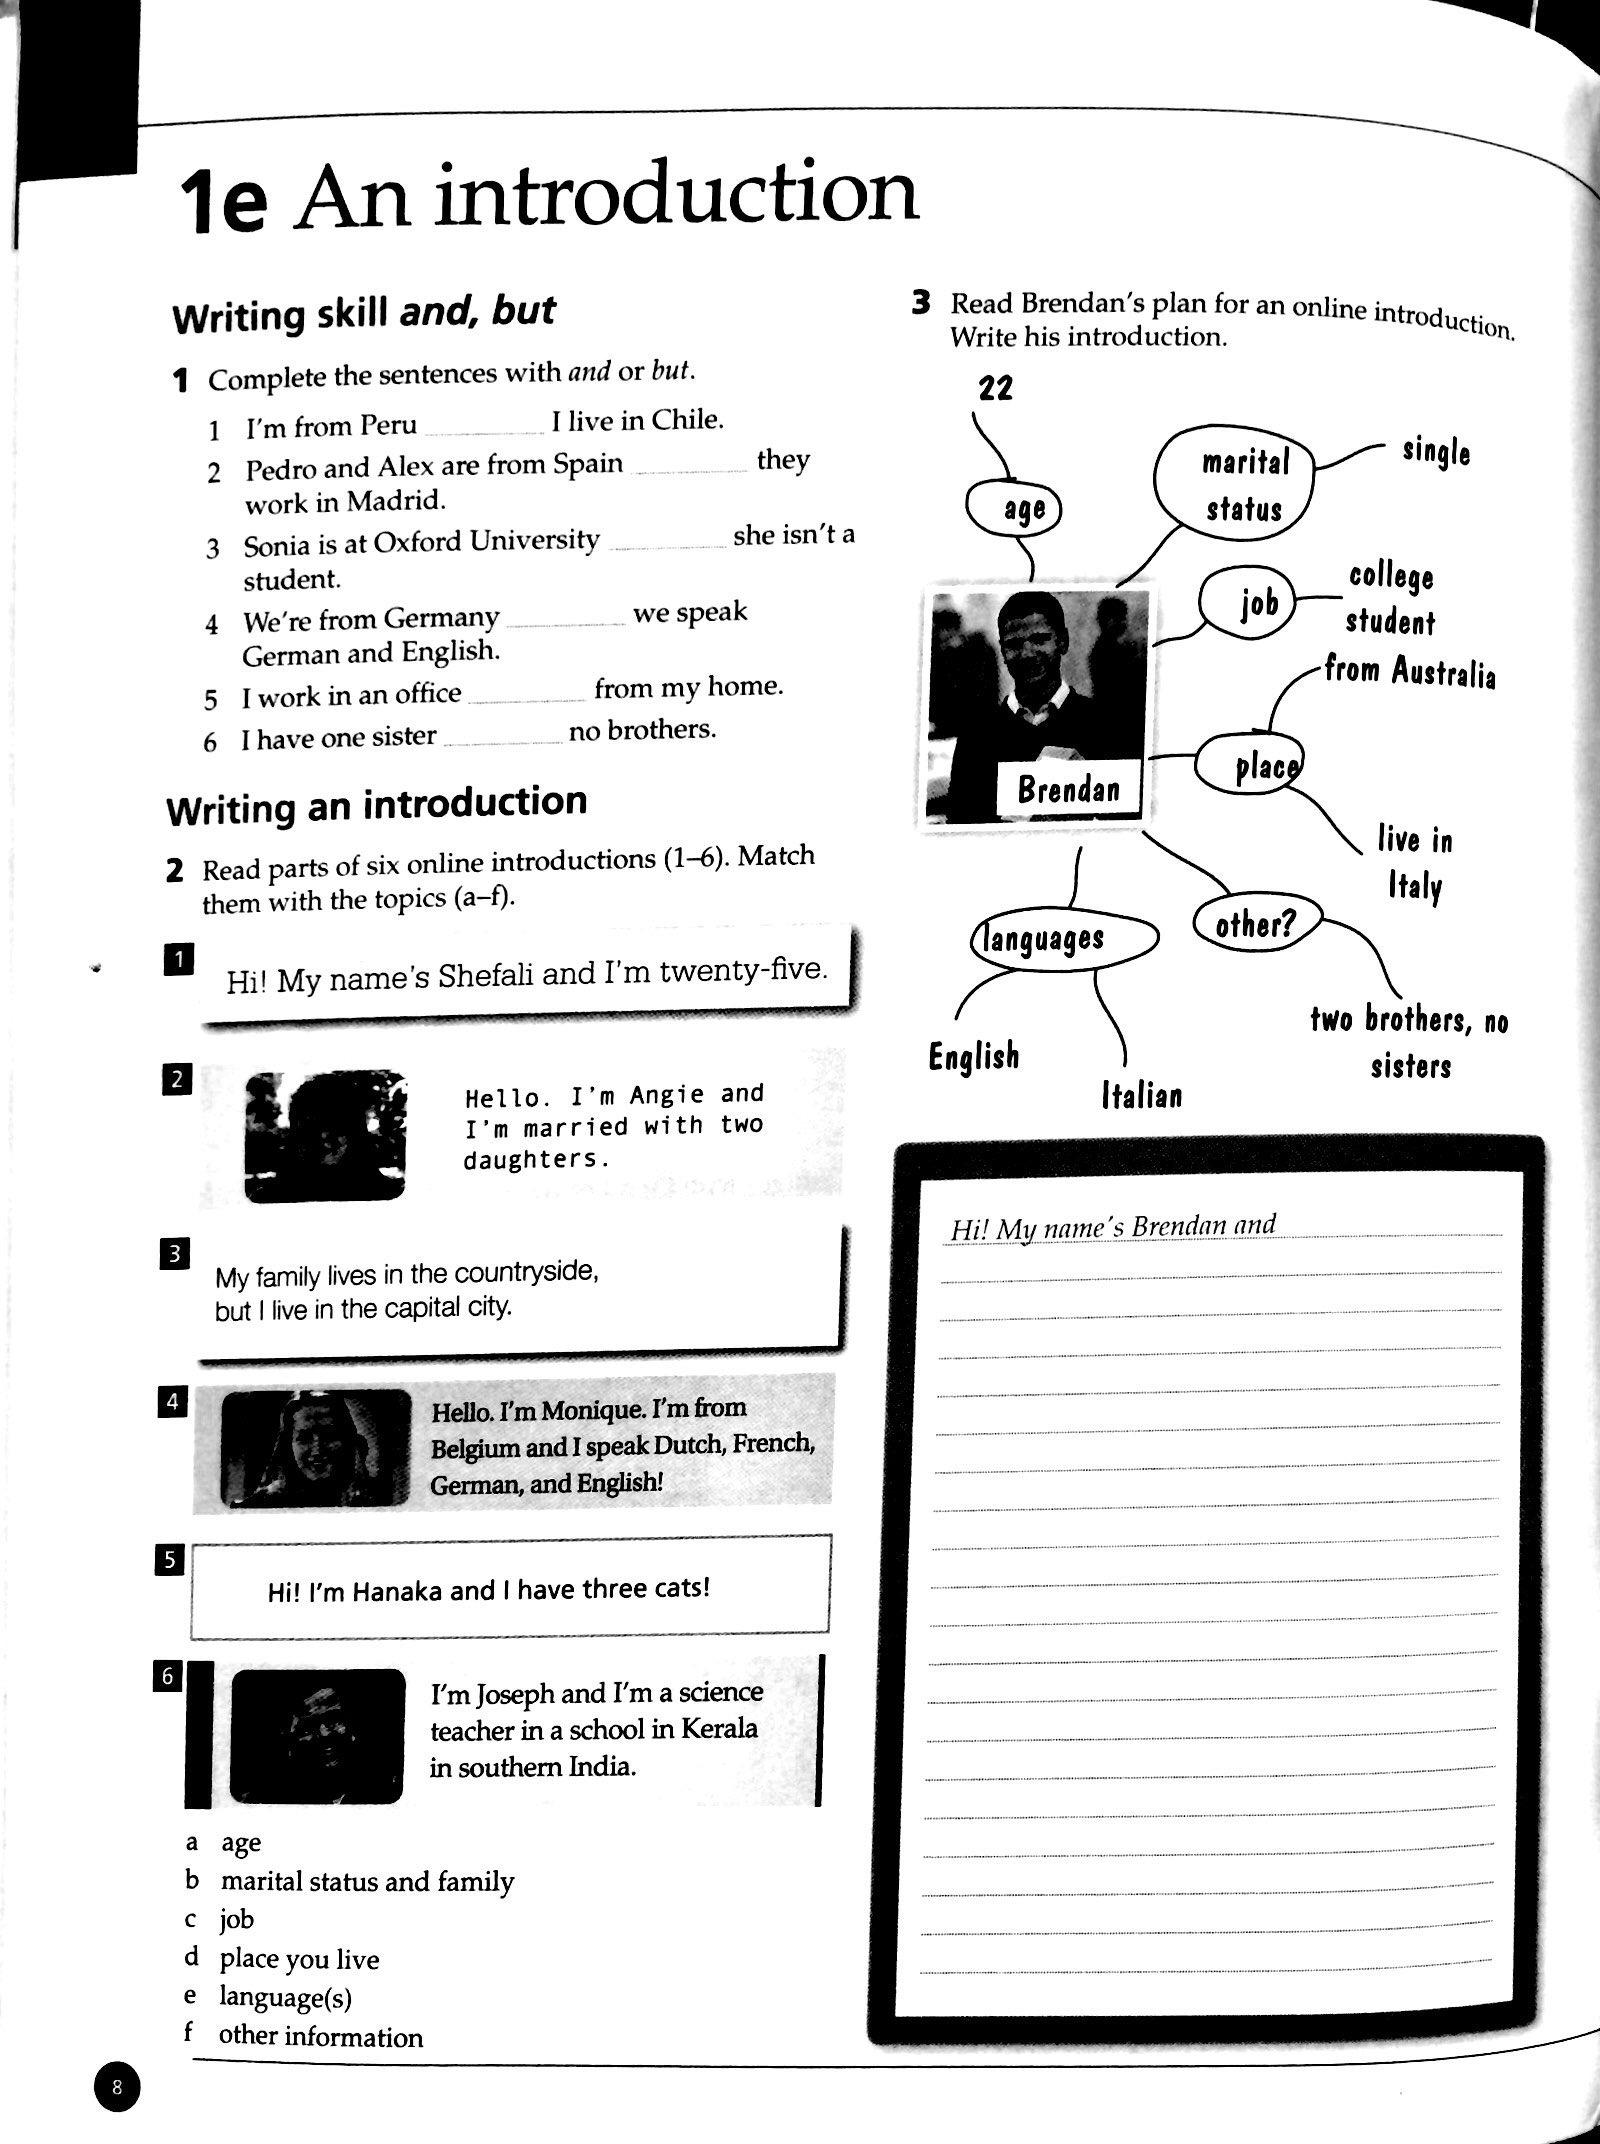 1e An introduction
Writing skill and, but
1 Complete the sentences with and or but.
1 I'm from Peru I live in Chile.
2 Pedro and Alex are from Spain they
work in Madrid.
3 Sonia is at Oxford University she isn't a
student.
4 We're from Germany we speak
German and English.
5 I work in an office from my home.
6 I have one sister no brothers.
Writing an introduction
2 Read parts of six online introductions (1–6). Match
them with the topics (a–f).
1
Hi! My name's Shefali and I'm twenty-five.
2
Hello. I'm Angie and
I'm married with two
daughters.
3
My family lives in the countryside,
but I live in the capital city.
4
Hello. I'm Monique. I'm from
Belgium and I speak Dutch, French,
German, and English!
5
Hi! I'm Hanaka and I have three cats!
6
I'm Joseph and I'm a science
teacher in a school in Kerala
in southern India.
a age
b marital status and family
c job
d place you live
e language(s)
f other information
8
3 Read Brendan's plan for an online introduction.
Write his introduction.
22
age
marital
status
single
job
college
student
from Australia
place
live in
Italy
Brendan
languages
English
Italian
other?
two brothers, no
sisters
Hi! My name's Brendan and